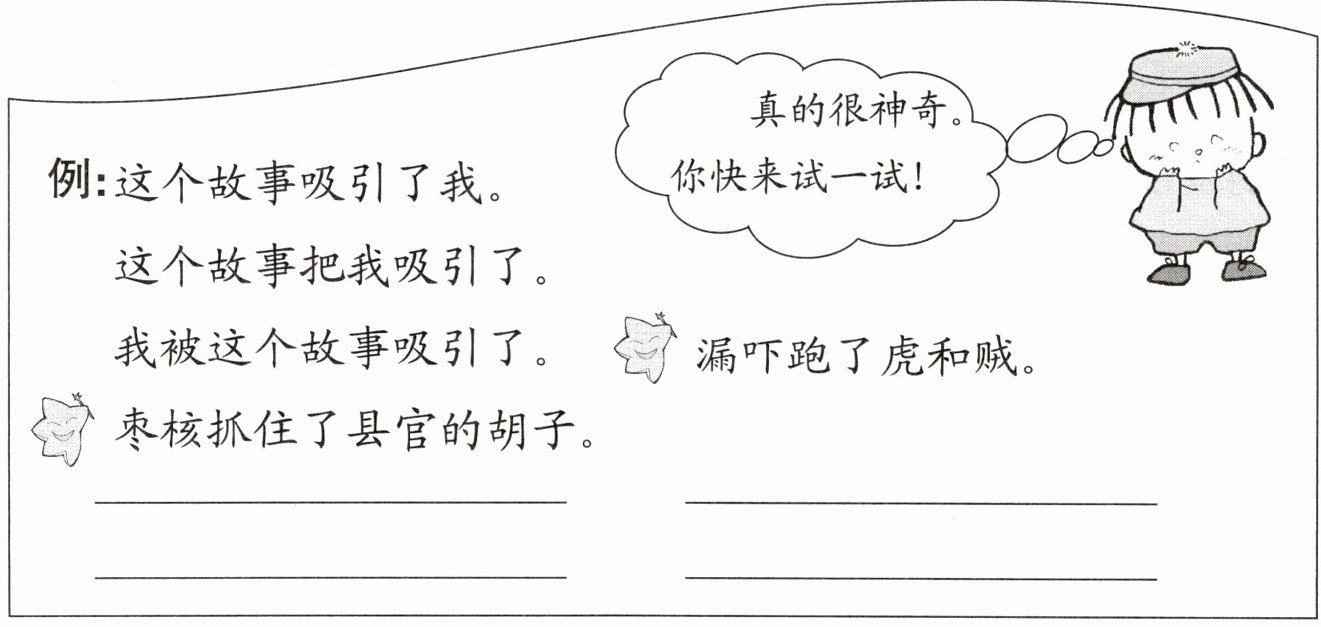 真的很神奇。
你快来试一试!
例:这个故事吸引了我。
这个故事把我吸引了。
我被这个故事吸引了。
漏吓跑了虎和贼。
枣核抓住了县官的胡子。